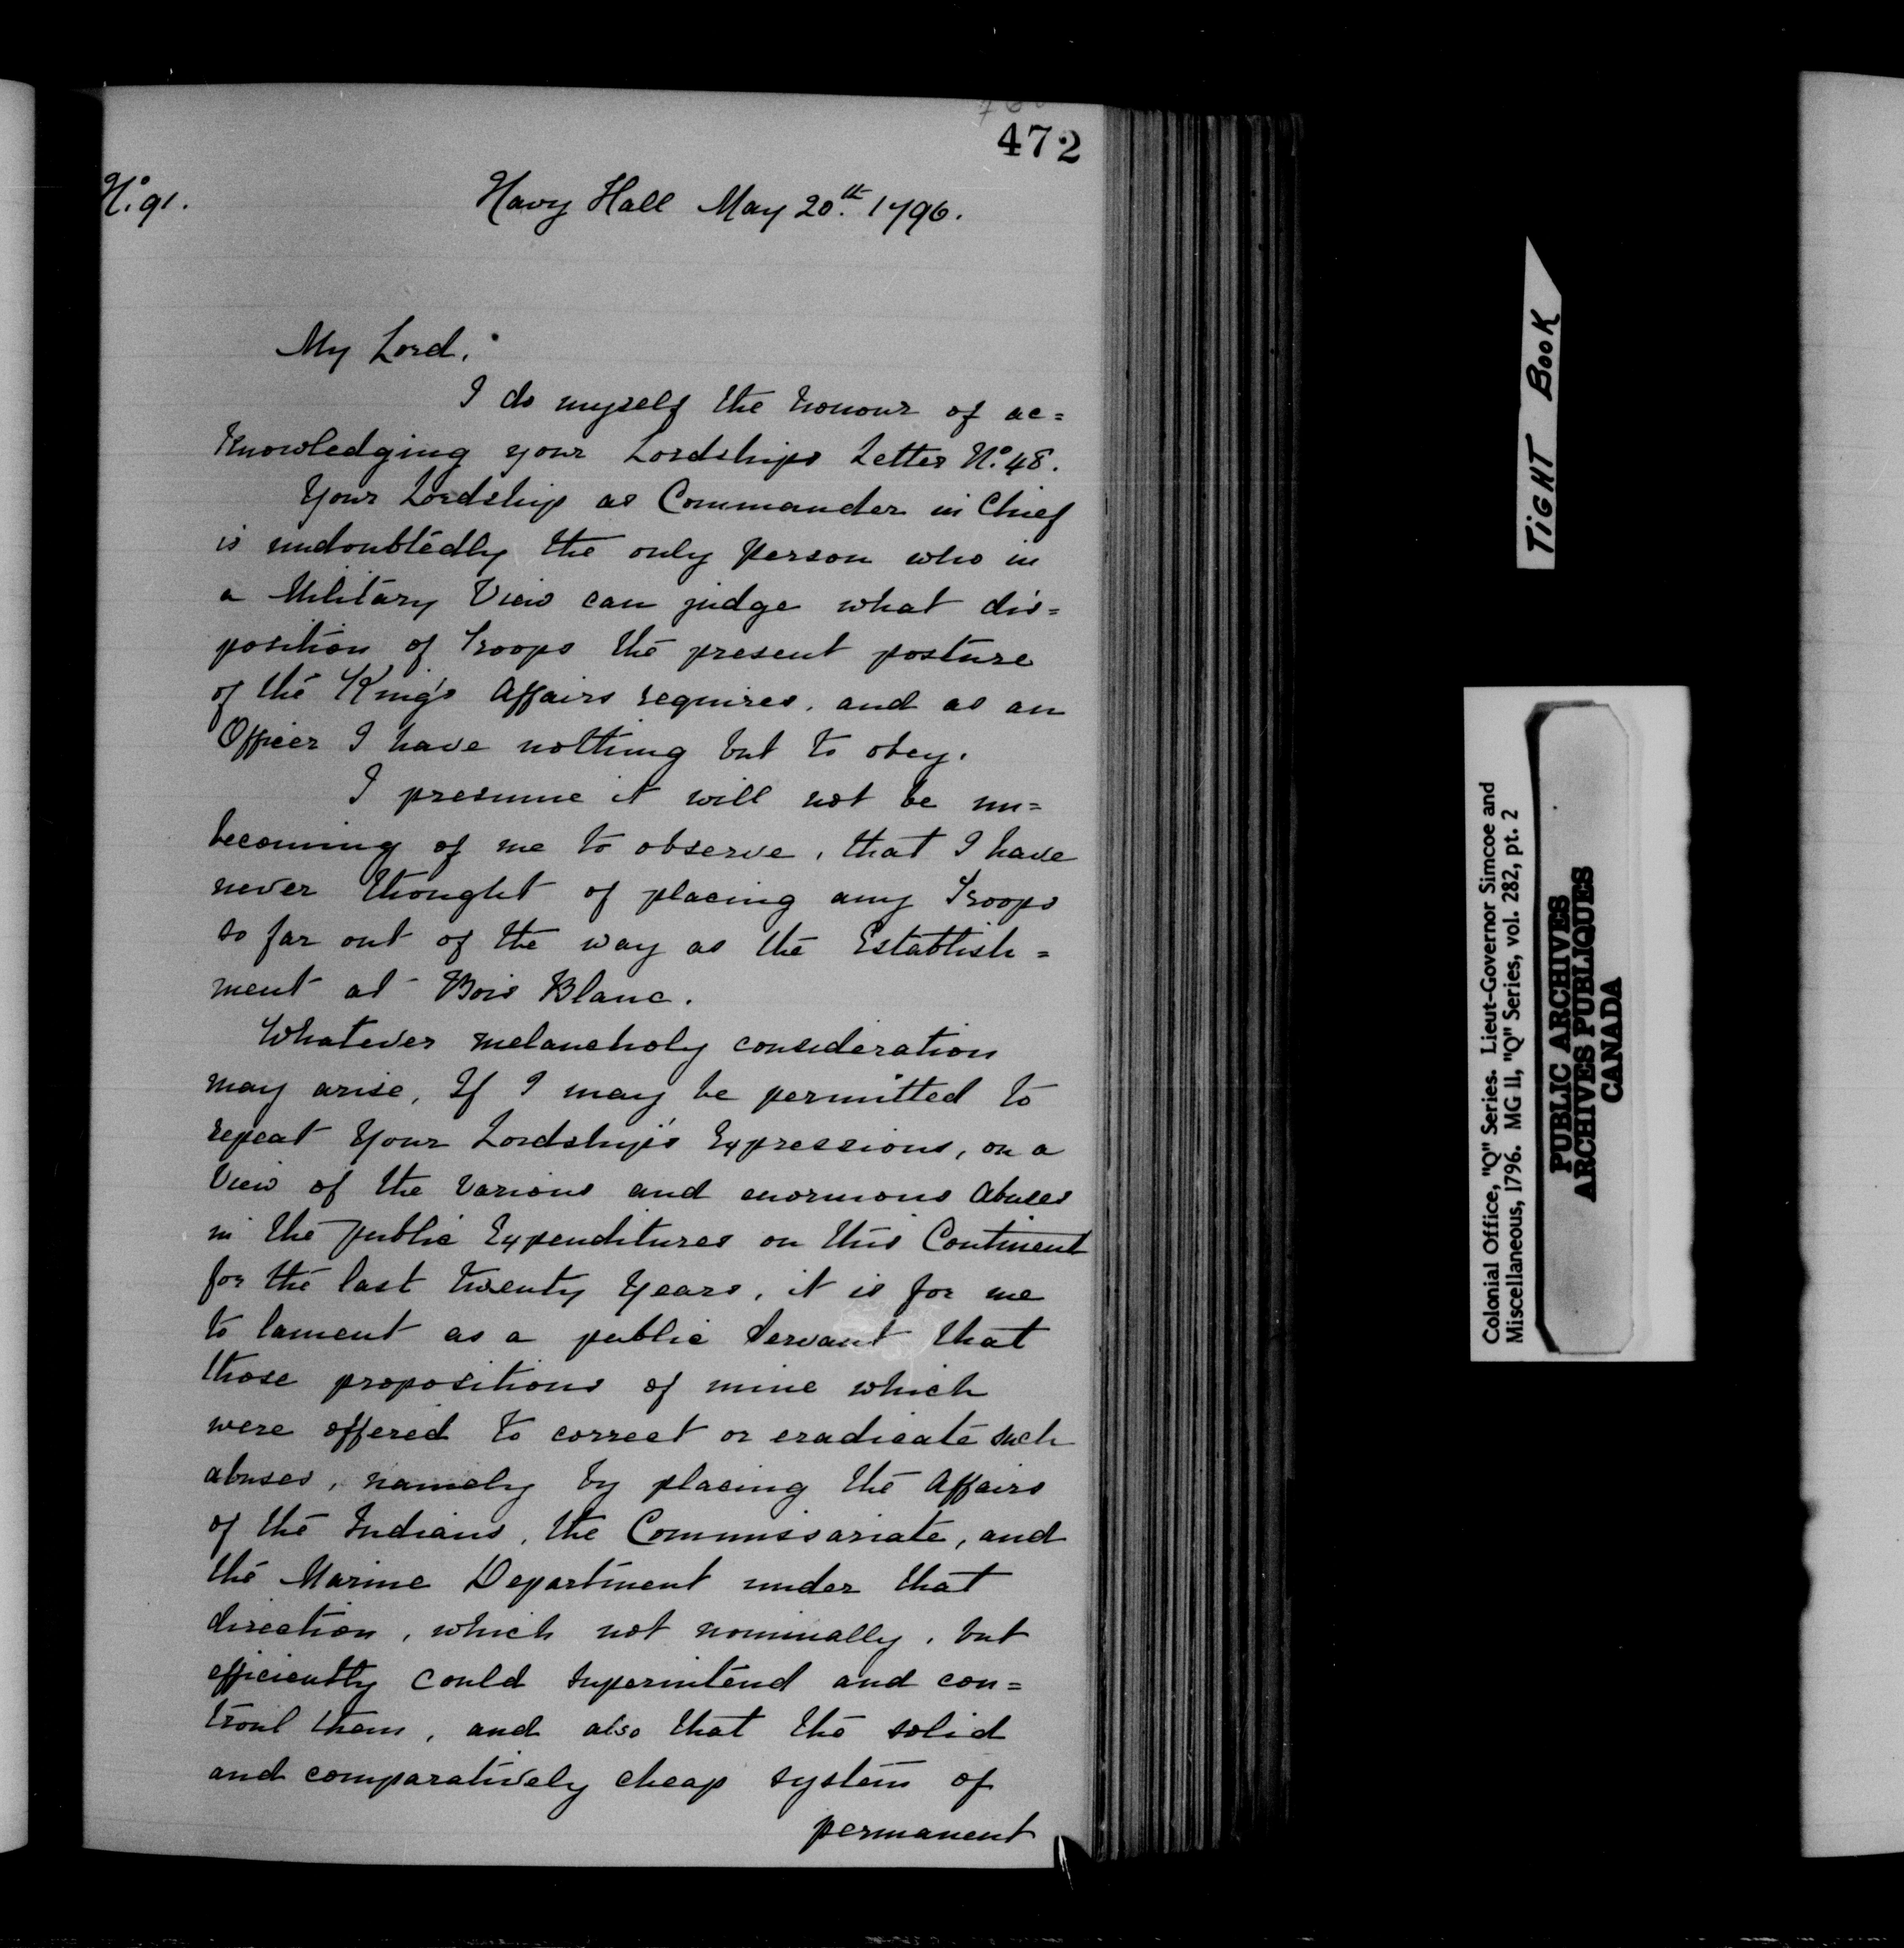 472
No. 91.
Navy Hall May 20.th 1796.
My Lord,
I do myself the honour of ac=
knowledging your Lordships Letter No. 48.
Your Lordship as Commander in Chief
is undoubtedly the only person who in
a Military View can judge what dis=
position of Troops the present posture
of the King's Affairs requires, and as an
Officer I have nothing but to obey.
I presume it will not be un=
becoming of me to observe, that I have
never thought of placing any Troops
so far out of the way as the Establish=
ment at Bois Blanc.
Whatever melancholy consideration
may arise, If I may be permitted to
repeat Your Lordship's Expressions, on a
View of the various and enormous abuses
in the public Expenditures on this Continent
for the last twenty Years, it is for me
to lament as a public Servant that
those propositions of mine which
were offered to correct or eradicate such
abuses, namely by placing the Affairs
of the Indians, the Commissariate, and
the Marine Department under that
direction, which not nominally, but
efficiently could superintend and con=
troul them, and also that the solid
and comparatively cheap system of
permanent
TIGHT BOOK
Colonial Office, "Q" Series. Lieut-Governor Simcoe and
Miscellaneous, 1796. MG 11, "Q" Series, vol. 282, pt. 2
PUBLIC ARCHIVES
ARCHIVES PUBLIQUES
CANADA